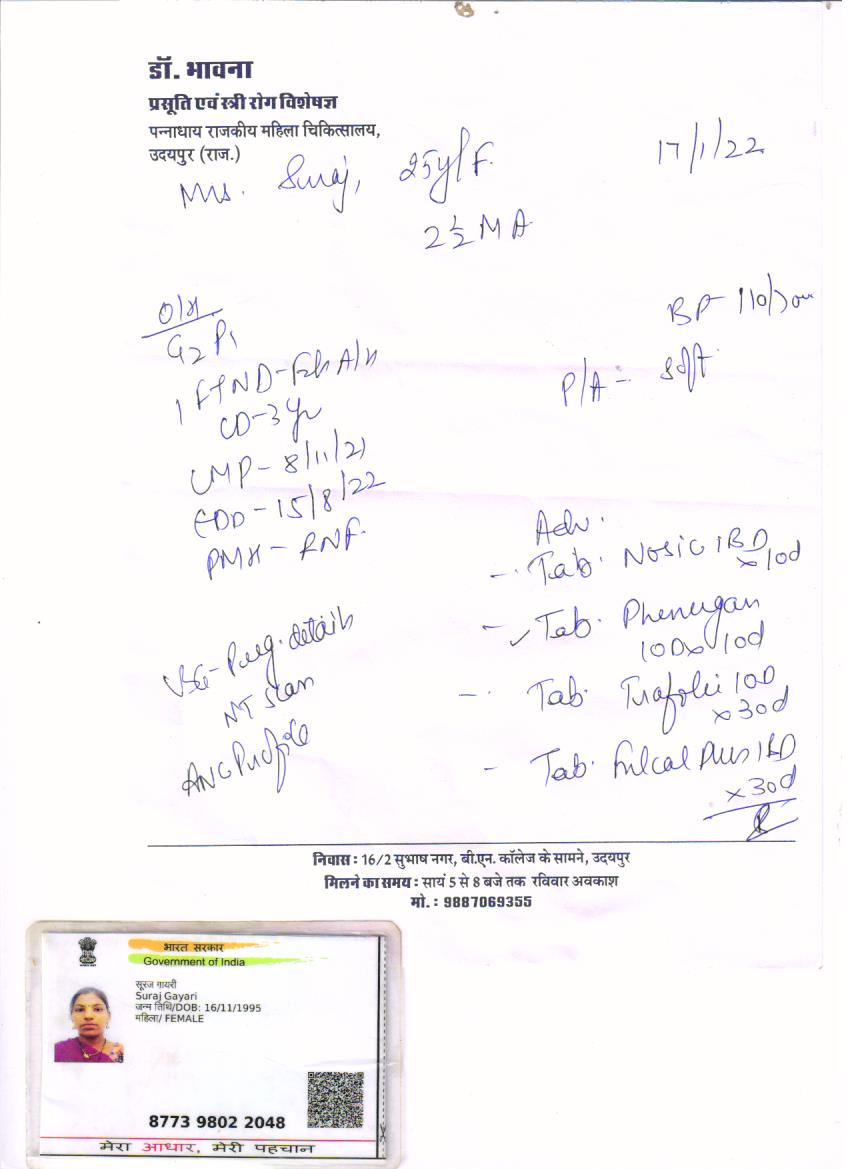 डॉ. भावना
प्रसूति एवं स्त्री रोग विशेषज्ञ
पन्नाधाय राजकीय महिला चिकित्सालय,
उदयपुर (राज.)
17/1/22
Mrs. Suraj, 25y/F.
2½ MA
O/H
G2 P1
BP- 110/70
P/A- soft
1 FTND-
CD-3yr
LMP- 8/11/21
EDD- 15/8/22
PMH-
Adv.
- Tab. Nosic 1BD x 10d
- Tab. Phenergan
1OD x 10d
USG- Preg. details
NT scan
- Tab. Trafolei 1OD
x 30d
ANC Profile
- Tab. Plus 1BD
x 30d
निवास : 16/2 सुभाष नगर, बी.एन. कॉलेज के सामने, उदयपुर
मिलने का समय : सायं 5 से 8 बजे तक रविवार अवकाश
मो. : 9887069355
भारत सरकार
Government of India
सूरज गायरी
Suraj Gayari
जन्म तिथि/DOB: 16/11/1995
महिला/ FEMALE
8773 9802 2048
मेरा आधार, मेरी पहचान